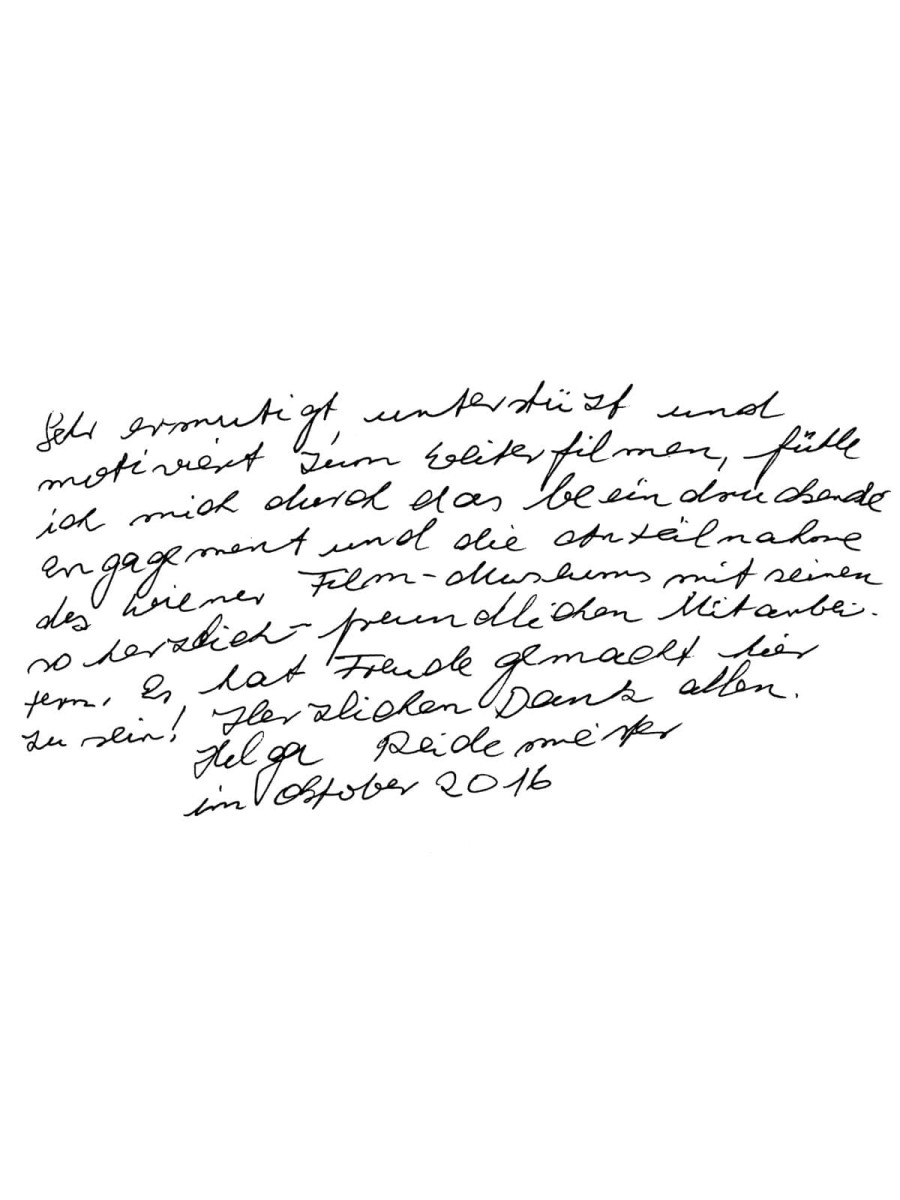 Sehr ermutigt, unterstützt und
motiviert zum Weiterfilmen, fühle
ich mich durch das beeindruckende
Engagement und die Anteilnahme
des Wiener Film-Museums mit seinen
so herzlich-freundlichen Mitarbei-
tern. Es hat Freude gemacht hier
zu sein! Herzlichen Dank allen.
Helga Reidemeister
im Oktober 2016